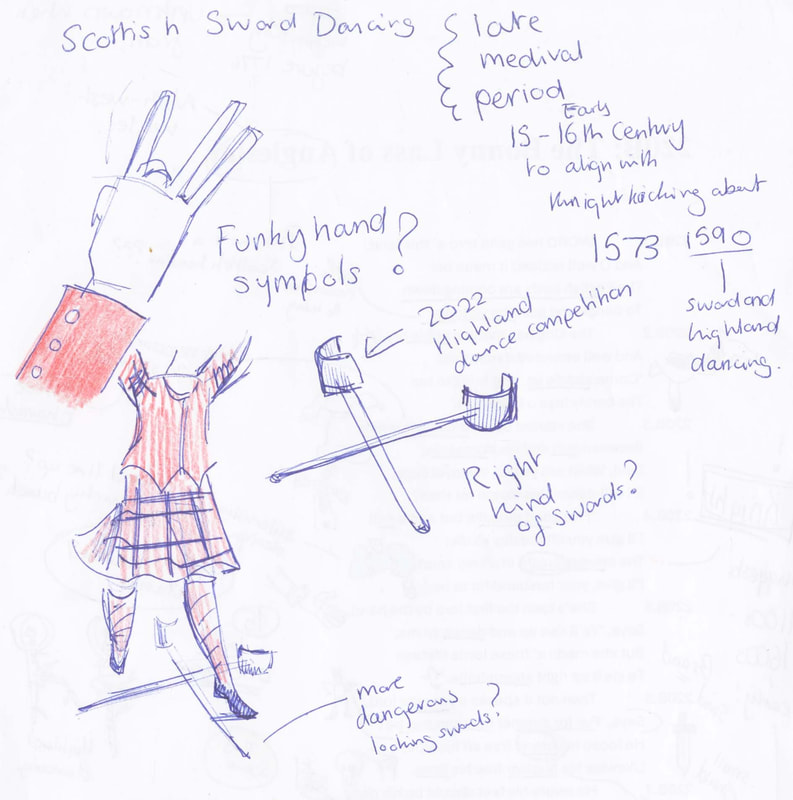 Scottish Sword Dancing
late
medival
period
Early
15 - 16th Century
to align with
Knight kicking about
1573 1590
sword and
highland
dancing.
Funky hand
symbols ?
2022
Highland
dance competition
Right
kind
of swords?
more
dangerous
looking swords?